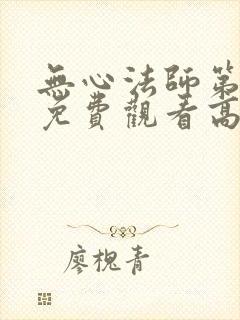 無心法師第
免費觀看高
廖槐青